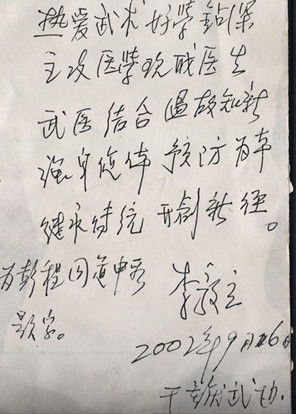 热爱武术 好学钻深
主攻医学 晓职医生
武医结合 温故知新
强身健体 预防为本
继承传统 开创新径。
为彭程同道中秀
题字。
李毅立
2002年9月26日
于 武协